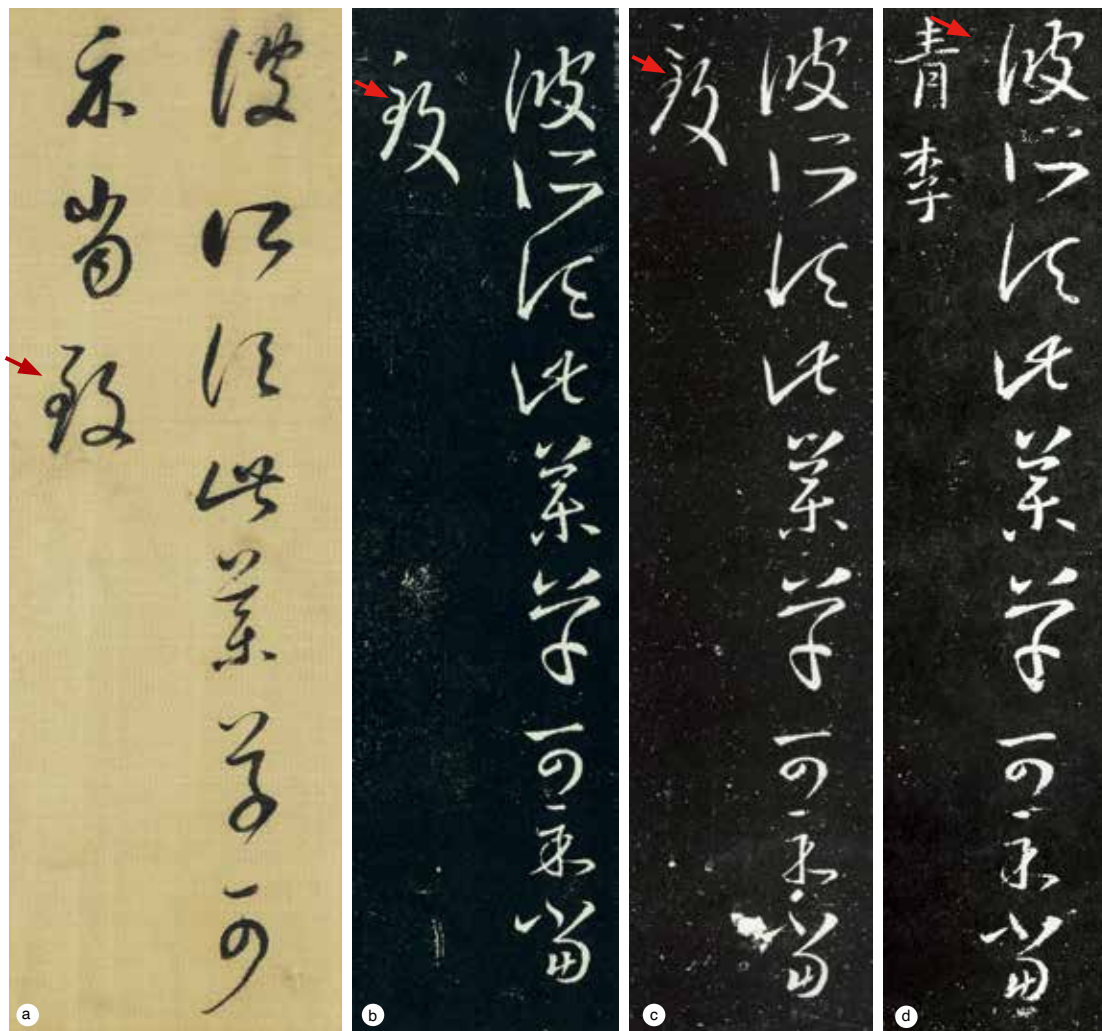 彼所須此藥草可
示當致
a
彼所須此藥草可示當
致
b
彼所須此藥草可示當
致
c
彼所須此藥草可示當
青李
d